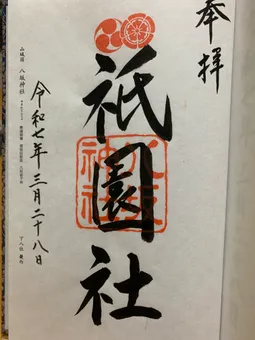 奉拝
祇園社
八坂
神社
令和七年三月二十八日
山城国 八坂神社